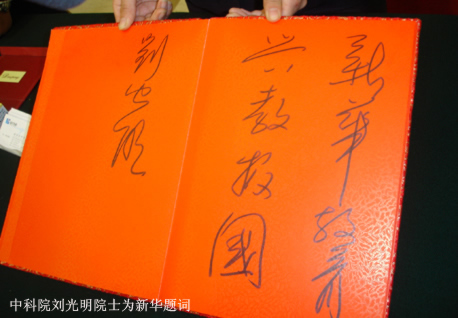 新华教育
兴教报国
刘光明
中科院刘光明院士为新华题词